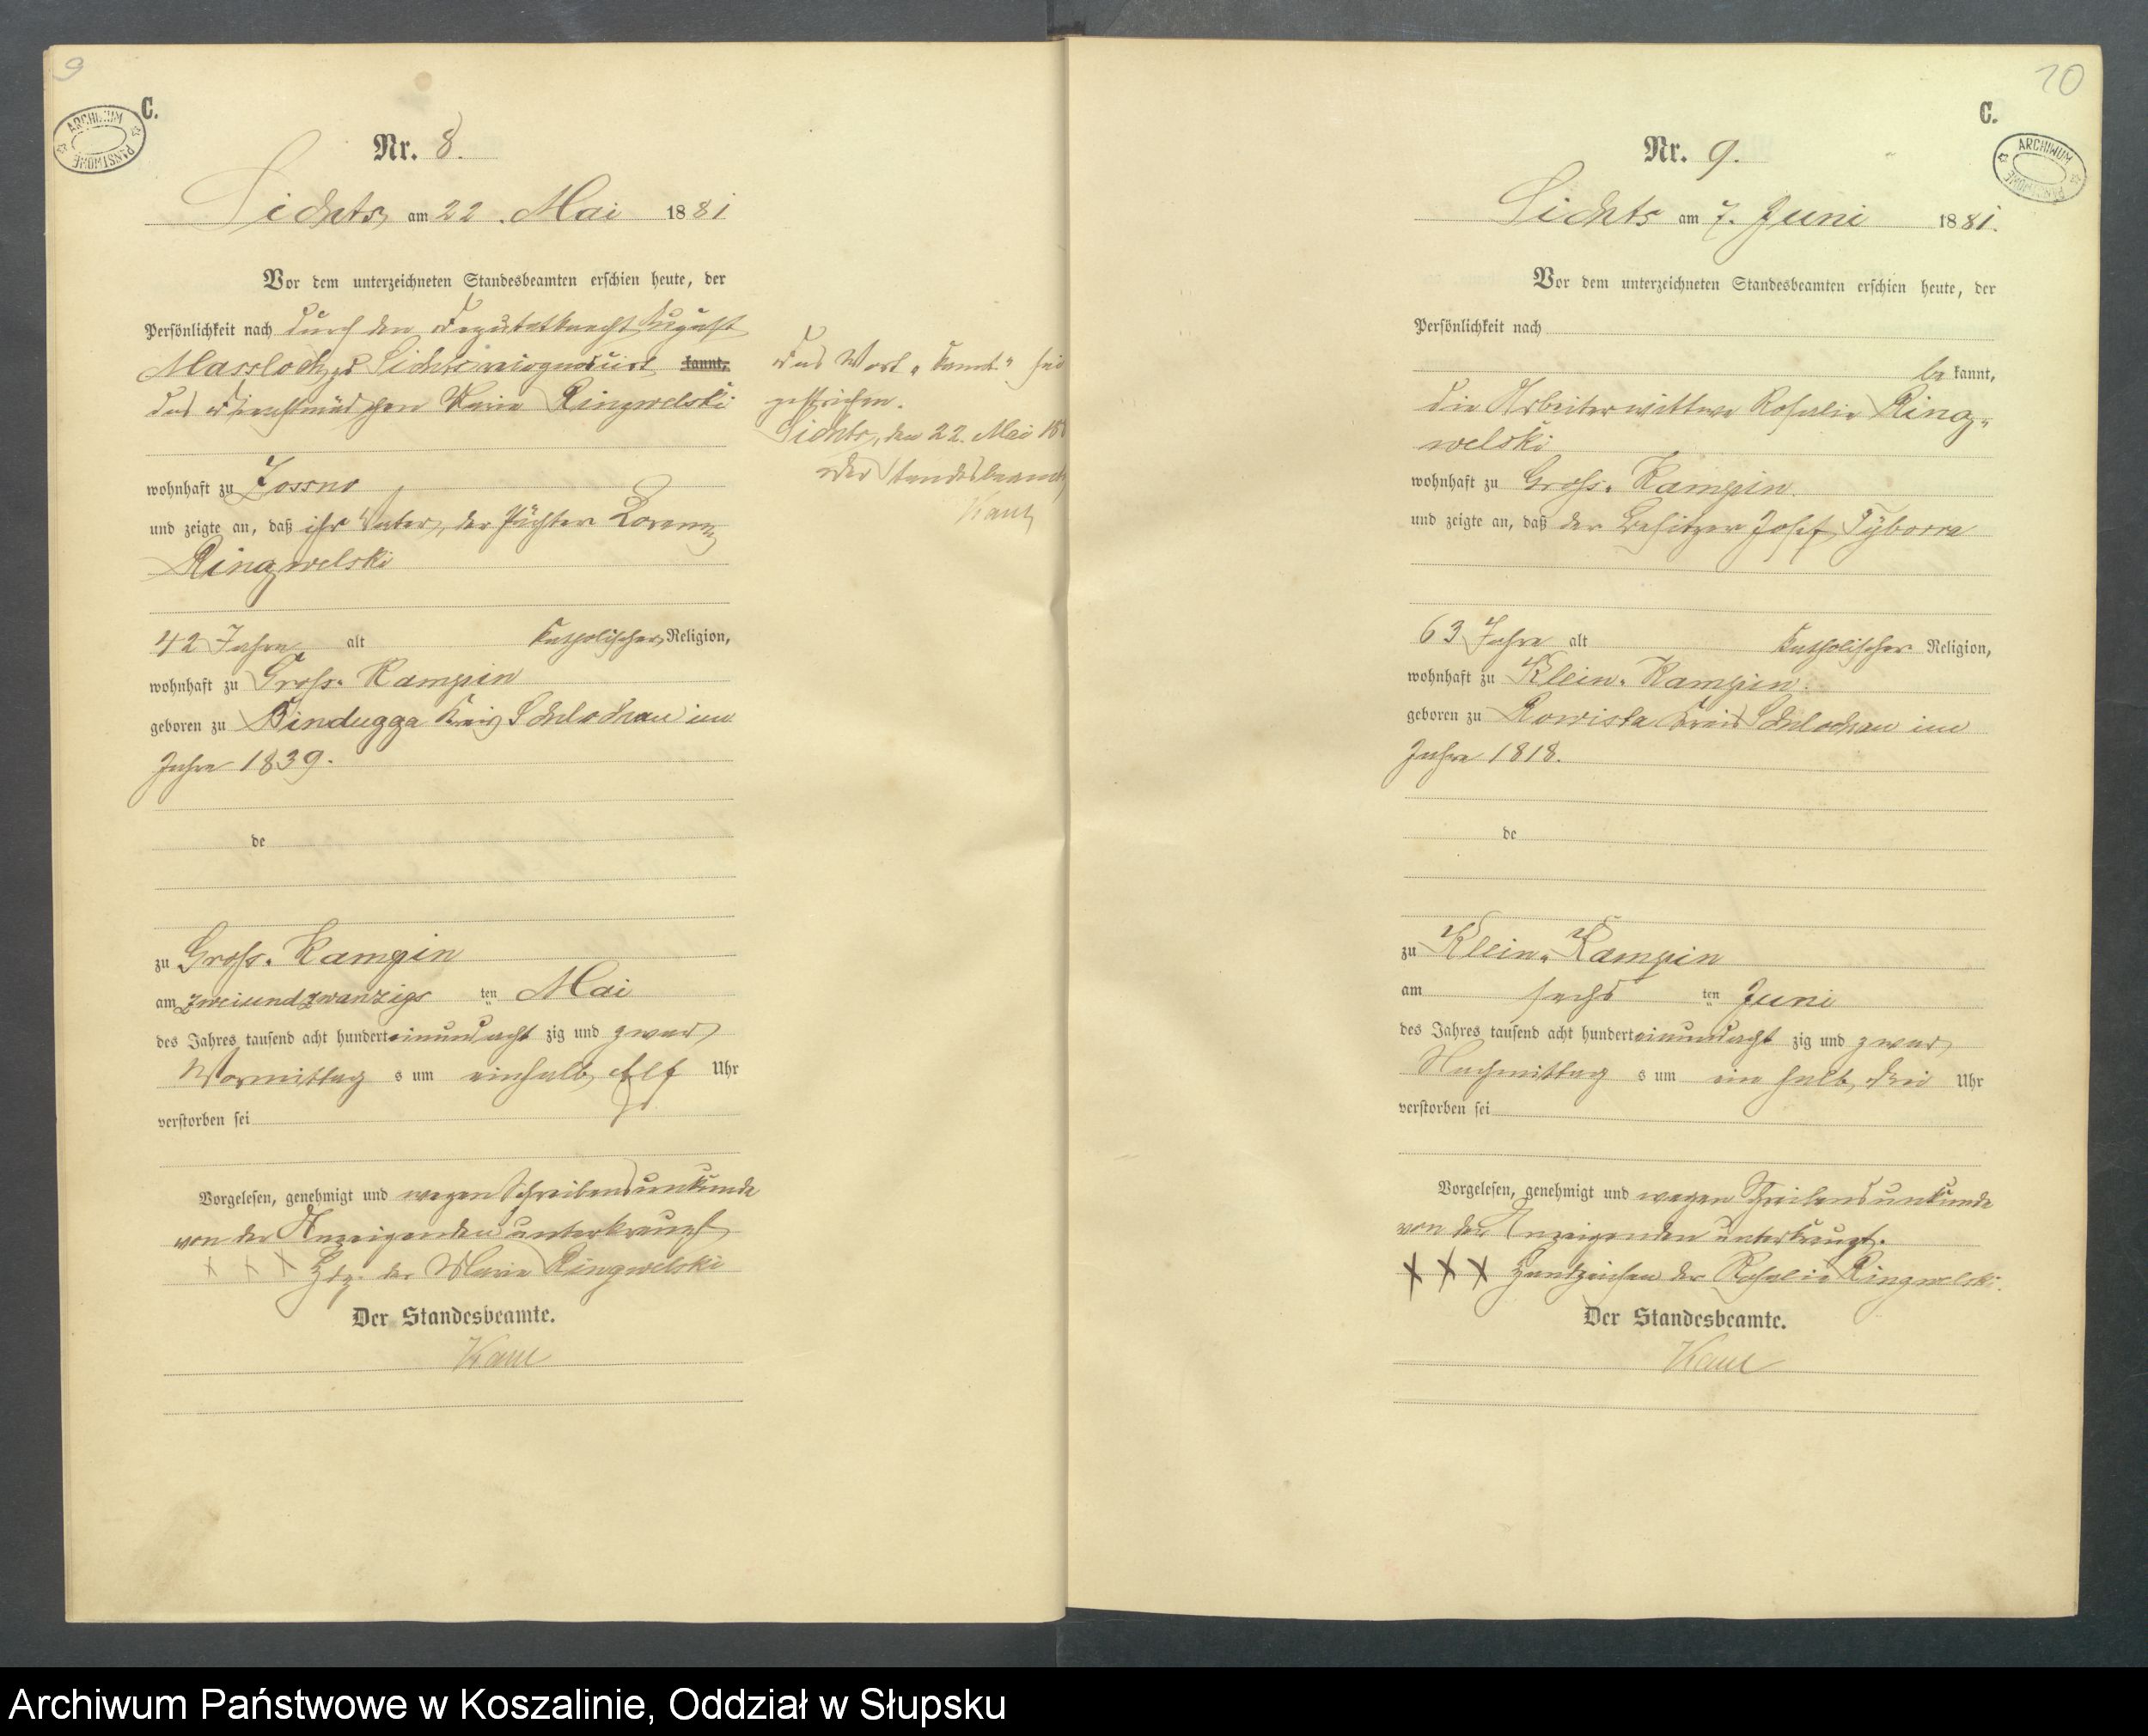 9
C.
ARCHIWUM PAŃSTWOWE
Nr. 8.
Sichts am 22. Mai 1881
Vor dem unterzeichneten Standesbeamten erschien heute, der
Persönlichkeit nach durch den Deputatknecht August
Massloch zu Sichts recognoscirt kannt,
das Dienstmädchen Marie Ringwelski
wohnhaft zu Zossno
und zeigte an, daß ihr Vater, der Pächter Lorenz
Ringwelski
42 Jahre alt katholischer Religion,
wohnhaft zu Gross-Kampin
geboren zu Bindugga Kreis Schlochau im
Jahre 1839.
de
zu Gross-Kampin
am zweiundzwanzigs ten Mai
des Jahres tausend acht hundert einundacht zig und zwar
Vormittag s um einhalb Elf Uhr
verstorben sei
Vorgelesen, genehmigt und wegen Schreibensunkunde
von der Anzeigenden unterkreuzt
X X X Hdz. der Marie Ringwelski
Der Standesbeamte.
Kaut
Das Wort „kannt" sei
gestrichen.
Sichts, den 22. Mai 188
Der Standesbeamte
Kaut
10
C.
ARCHIWUM PAŃSTWOWE
Nr. 9.
Sichts am 7. Juni 1881.
Vor dem unterzeichneten Standesbeamten erschien heute, der
Persönlichkeit nach
be kannt,
die Arbeiterwittwe Rosalie Ring-
welski
wohnhaft zu Gross-Kampin
und zeigte an, daß der Besitzer Josef Tyborra
63 Jahre alt katholischer Religion,
wohnhaft zu Klein-Kampin.
geboren zu Rowista Kreis Schlochau im
Jahre 1818.
de
zu Klein-Kampin
am sechs ten Juni
des Jahres tausend acht hundert einundacht zig und zwar
Nachmittag s um ein halb drei Uhr
verstorben sei
Vorgelesen, genehmigt und wegen Schreibensunkunde
von der Anzeigenden unterkreuzt.
X X X Handzeichen der Rosalie Ringwelski.
Der Standesbeamte.
Kaut
Archiwum Państwowe w Koszalinie, Oddział w Słupsku